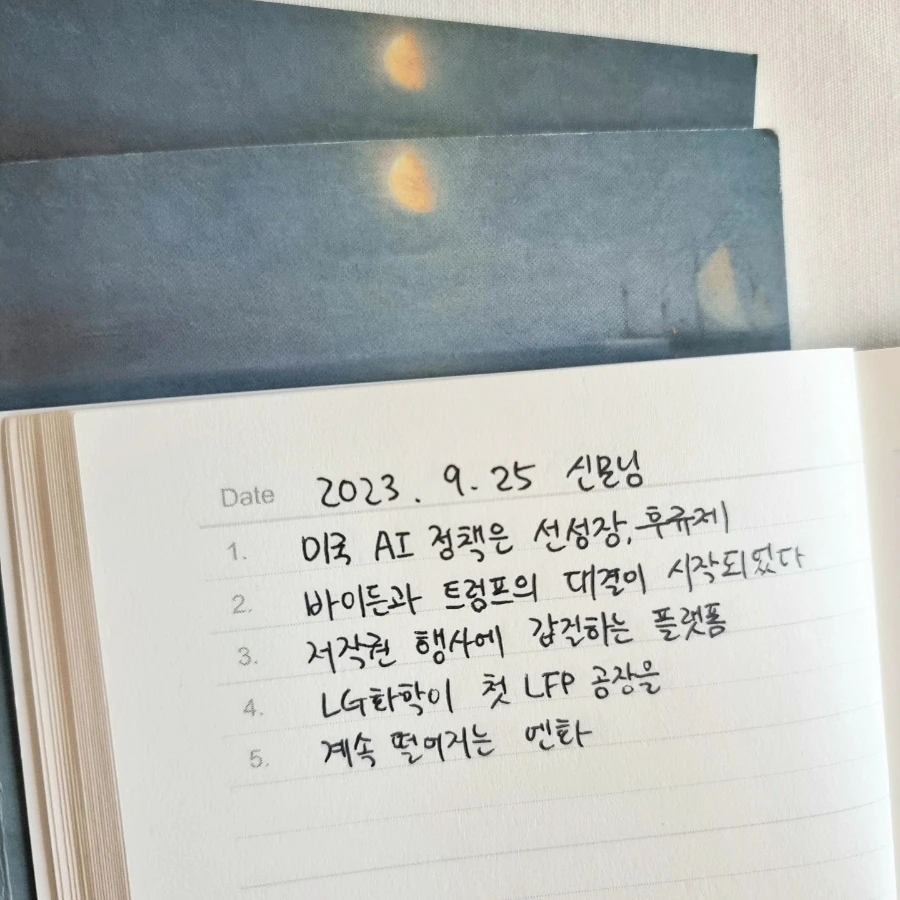 Date 2023. 9. 25 신문님
1. 미국 AI 정책은 선성장, 후규제
2. 바이든과 트럼프의 대결이 시작되었다
3. 저작권 행사에 갑질하는 플랫폼
4. LG화학이 첫 LFP 공장을
5. 계속 떨어지는 엔화